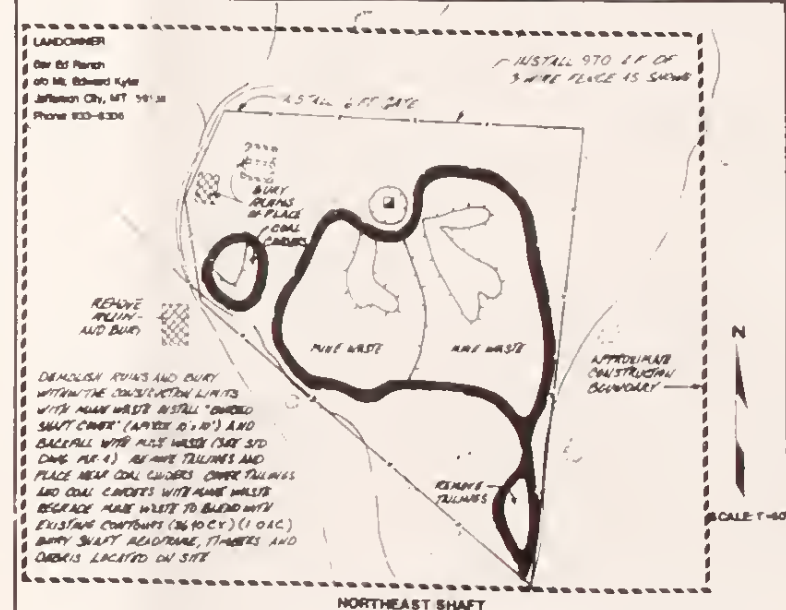 LANDOWNER
Bar Ed Ranch
c/o Mr. Edward Kyler
Jefferson City, MT
Phone 933-8306
INSTALL 970 L.F. OF
3 WIRE FENCE AS SHOWN
INSTALL FT GATE
BURY
RUINS
IN PLACE
COAL
CINDERS
REMOVE
RUIN
AND BURY
MINE WASTE
MINE WASTE
N
APPROXIMATE
CONSTRUCTION
BOUNDARY
DEMOLISH RUINS AND BURY
WITHIN THE CONSTRUCTION LIMITS
WITH MINE WASTE INSTALL "BURIED
SHAFT COVER" (APPROX 10'x10') AND
BACKFILL WITH MINE WASTE (SEE STD
DWG. 4) REMOVE TAILINGS AND
PLACE NEAR COAL CINDERS COVER TAILINGS
AND COAL CINDERS WITH MINE WASTE
REGRADE MINE WASTE TO BLEND WITH
EXISTING CONTOURS (3690 CY) (1.0 AC)
BURY SHAFT HEADFRAME, TIMBERS AND
DEBRIS LOCATED ON SITE
REMOVE
TAILINGS
SCALE 1"=60'
NORTHEAST SHAFT